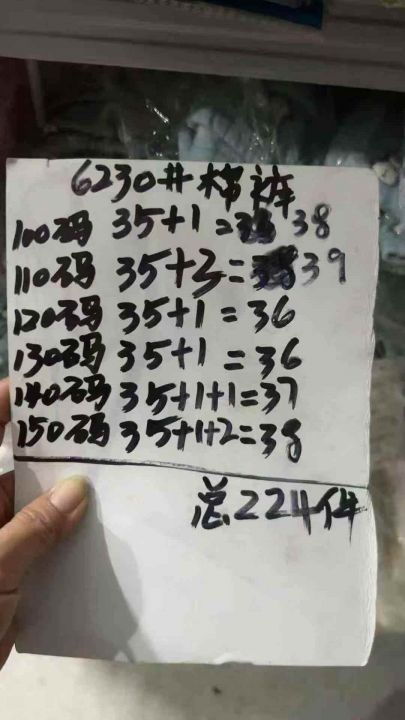 6230#棉裤
100码 35+1=38
110码 35+3=39
120码 35+1=36
130码 35+1=36
140码 35+1+1=37
150码 35+1+2=38
总224件